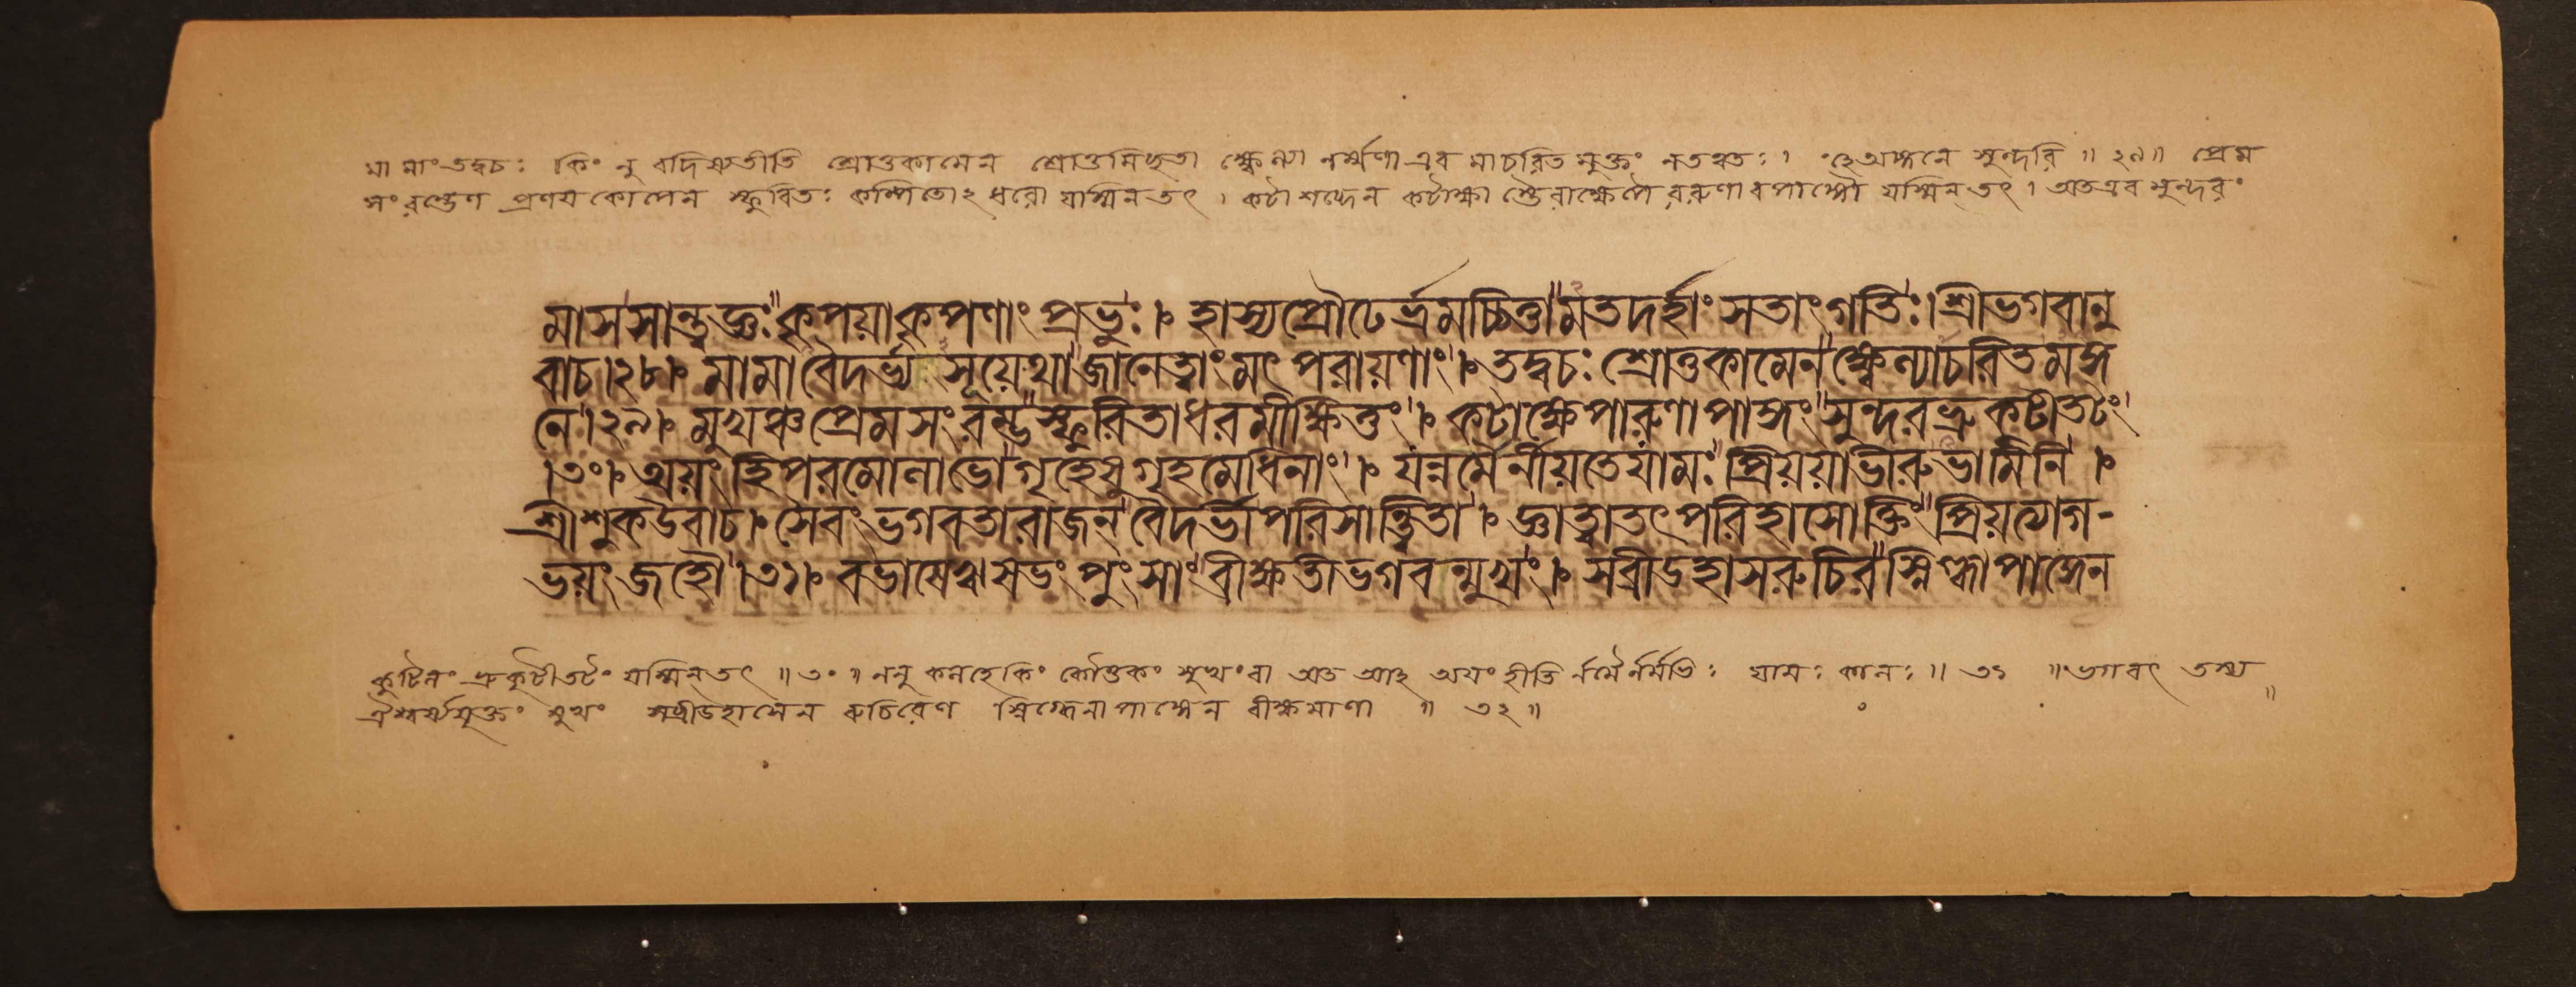 মা মাং তদ্বচঃ কিং নু বদিষ্যতীতি শ্রোতুকামেন শ্রোতুমিছতা ক্ষ্বেল্যা নর্ম্মণা এব মাচরিত মুক্তং নতত্বতঃ। হেঅঙ্গনে সুন্দরি॥ ২৯॥ প্রেম
সংরম্ভেণ প্রণয় কোপেন স্ফুরিতঃ কম্পিতোঽধরো যস্মিনতৎ। কটা শব্দেন কটাক্ষা স্তৈরাক্ষেপৈ ররুণাবপাঙ্গৌ যস্মিন্তৎ। অতএব সুন্দরং
মাসসান্ত্বজ্ঞঃ"কৃপয়াকৃপণাং প্রভুঃ।০ হাস্যপ্রৌঢের্ভ্রমচ্চিত্তা"মতদর্হাং সতাং গতিঃ।শ্রীভগবানু
বাচ।২৮।০ মামা বৈদর্ভ্য সূয়েথা"জানেত্বাং মৎ পরায়ণাং।০ তদ্বচঃ শ্রোতুকামেন"ক্ষ্বেল্যাচরিতমঙ্গ
নে।২৯।০ মুখঞ্চ প্রেমসংরম্ভ"স্ফুরিতাধরমীক্ষিতুং।০ কটাক্ষেপারুণাপাঙ্গং"সুন্দরভ্রুকটীতটং
।৩০।০ অয়ং হি পরমোলাভো"গৃহেষু গৃহমেধিনাং।০ যন্নর্মৈর্নীয়তেযামঃ"প্রিয়য়াভীরুভামিনি।০
শ্রীশুকউবাচ।০ সৈবং ভগবতারাজন্"বৈদর্ভীপরিসান্ত্বিতা।০ জ্ঞাত্বাতৎ পরিহাসোক্তিং"প্রিয়ত্যাগ-
ভয়ং জহৌ।৩১।০ বভাষেঋষভং পুংসাং"বীক্ষতীভগবন্মুখং।০ সব্রীডহাসরুচির"স্নিগ্ধাপাঙ্গেন
কুটিলং ভ্রুকুটীতটং যস্মিন্তৎ॥ ৩০॥ ননু কলহেকিং কৌতুকং সুখং বা অত আহ অয়ং হীতি র্নর্মৈর্নর্মভিঃ যামঃ কালঃ॥ ৩১ ॥ভগবৎ তস্য
ঐশ্বর্য্যযুক্তং মুখং সব্রীডহাসেন রুচিরেণ স্নিগ্ধেনাপাঙ্গেন বীক্ষমাণা ॥ ৩২॥